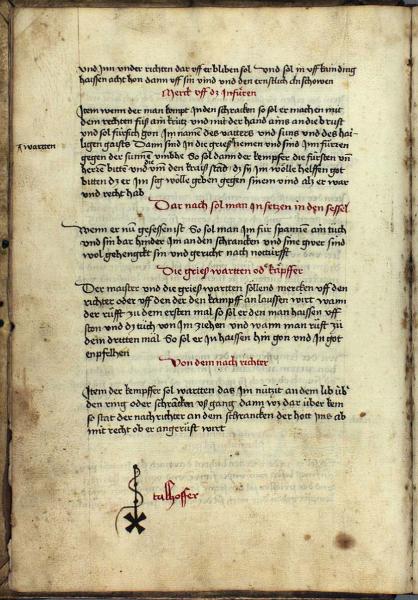 und Inn under richten dar uff er bliben sol Und sol in uff künding
haissen acht hon dann uff sin vind und den ernstlich anschowen
Merck uff dz Infüren
Item wenn der man kompt In den schrancken so sol er machen mit
dem rechten fuß ain krütz und mit der hand ains an die brust
und sol fürsich gon Im namen des vatters und suns und des hai-
ligen gaists Dann sind in die grieß nemen und sind Im fürzen
wartten
gegen der sunnen umbhe So sol dann der kempfer die fürsten vnd
herren bitte und die umb den kraiß stand dz sy Im wolle helffen got
bitten dz er Im sig wolle geben gegen sinem vind als er war
und recht hab
Dar nach sol man In setzen in den sessel
Wenn er nu gesessen ist So sol man Im für spannen ain tuch
und sin bar hinder Im an den schrancken und sine gwer sind
wol gehengckt sin und gericht nach notturfft
Die grieß wartten od kåpffer
Der maister und die grieß wartten sollend mercken uff den
richter oder uff den der den kampff an laussen wirt wann
der rüfft zu dem ersten mal so sol er den man haissen uff
ston und dz tuch von Im ziehen und wann man rüft zu
dem dritten mal So sol er In haissen hin gon und In got
enpfelhen
Von dem nach richter
Item der kempffer sol wartten das Im nützit an dem lib über
den ring oder schrācken uß gang dann wz dar über kem
so stat der nach richter an dem schrancken der hott Ims ab
mit recht ob er angerüft wirt
talhoffer